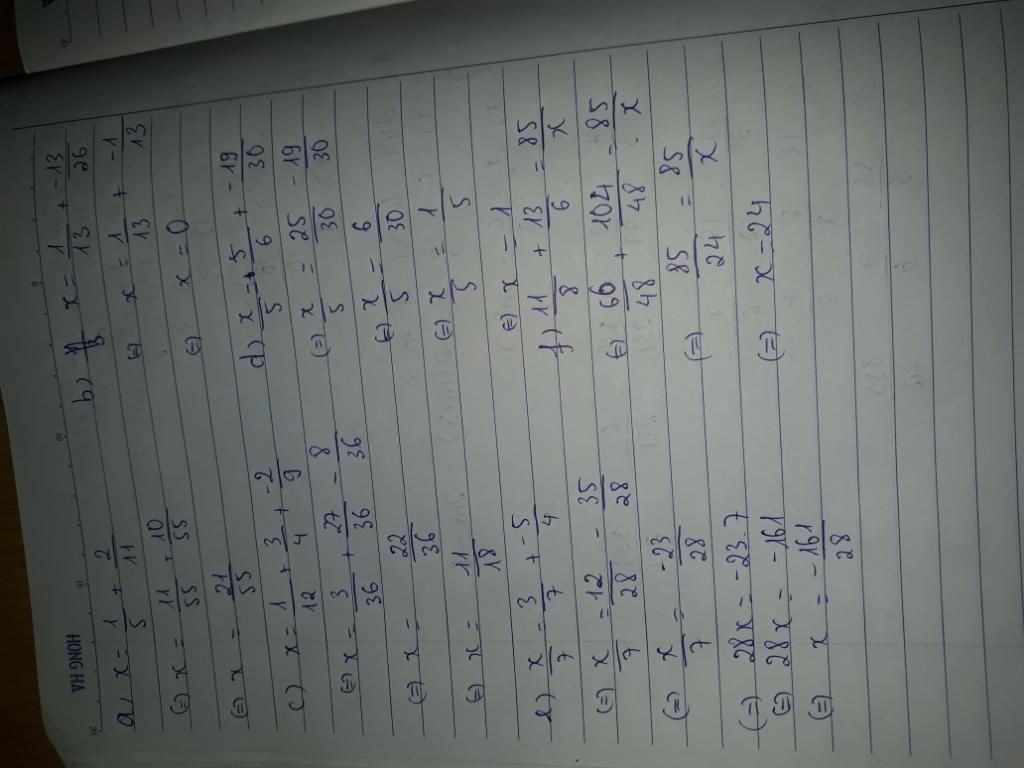 HONG HA
a) x = 1/5 + 2/11
(=) x = 11/55 + 10/55
(=) x = 21/55
c) x = 1/12 + 3/4 + -2/9
(=) x = 3/36 + 27/36 - 8/36
(=) x = 22/36
(=) x = 11/18
e) x/7 = 3/7 + -5/4
(=) x/7 = 12/28 - 35/28
(=) x/7 = -23/28
(=) 28x = -23.7
(=) 28x = -161
(=) x = -161/28
b) x = 1/13 + -13/26
(=) x = 1/13 + -1/13
(=) x = 0
d) x/5 = 5/6 + -19/30
(=) x/5 = 25/30 - 19/30
(=) x/5 = 6/30
(=) x/5 = 1/5
(=) x = 1
f) 11/8 + 13/6 = 85/x
(=) 66/48 + 104/48 = 85/x
(=) 85/24 = 85/x
(=) x = 24